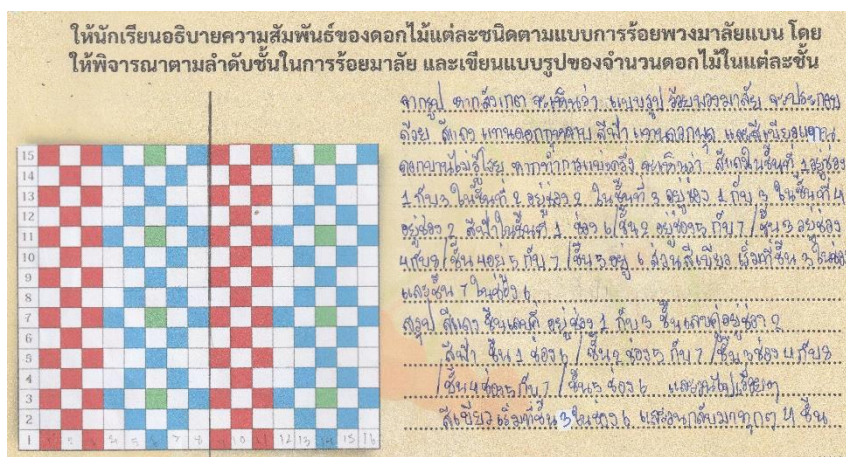 ให้นักเรียนอธิบายความสัมพันธ์ของดอกไม้แต่ละชนิดตามแบบการร้อยพวงมาลัยแบน โดย
ให้พิจารณาตามลำดับชั้นในการร้อยมาลัย และเขียนแบบรูปของจำนวนดอกไม้ในแต่ละชั้น
จากรูป หากสังเกต จะเห็นว่า แบบรูปร้อยพวงมาลัย จะประกอบ
ด้วย สีแดง แทนดอกกุหลาบ สีฟ้า แทนดอกพุด และสีเขียวแทน
ดอกบานไม่รู้โรย หากทำการแบ่งครึ่ง จะเห็นว่า สีแดงในชั้นที่ 1 อยู่ช่อง
1 กับ 3 ในชั้นที่ 2 อยู่ช่อง 2 ในชั้นที่ 3 อยู่ช่อง 1 กับ 3 ในชั้นที่ 4
อยู่ช่อง 2 สีฟ้าในชั้นที่ 1 ช่อง 6 / ชั้น 2 อยู่ช่อง 5 กับ 7 / ชั้น 3 อยู่ช่อง
4 กับ 8 / ชั้น 4 อยู่ 5 กับ 7 / ชั้น 5 อยู่ 6 ส่วนสีเขียว เริ่มที่ชั้น 3 ในช่อง
และชั้น 7 ในช่อง 6
สรุป สีแดง ชั้นเลขคี่ อยู่ช่อง 1 กับ 3 ชั้นเลขคู่อยู่ช่อง 2
สีฟ้า ชั้น 1 ช่อง 6 / ชั้น 2 ช่อง 5 กับ 7 / ชั้น 3 ช่อง 4 กับ 8
/ ชั้น 4 ช่อง 5 กับ 7 / ชั้น 5 ช่อง 6 และวนไปเรื่อยๆ
สีเขียวเริ่มที่ชั้น 3 ในช่อง 6 และวนกลับมาทุกๆ 4 ชั้น
15
14
13
12
11
10
9
8
7
6
5
4
3
2
1 1 2 3 4 5 6 7 8 9 10 11 12 13 14 15 16